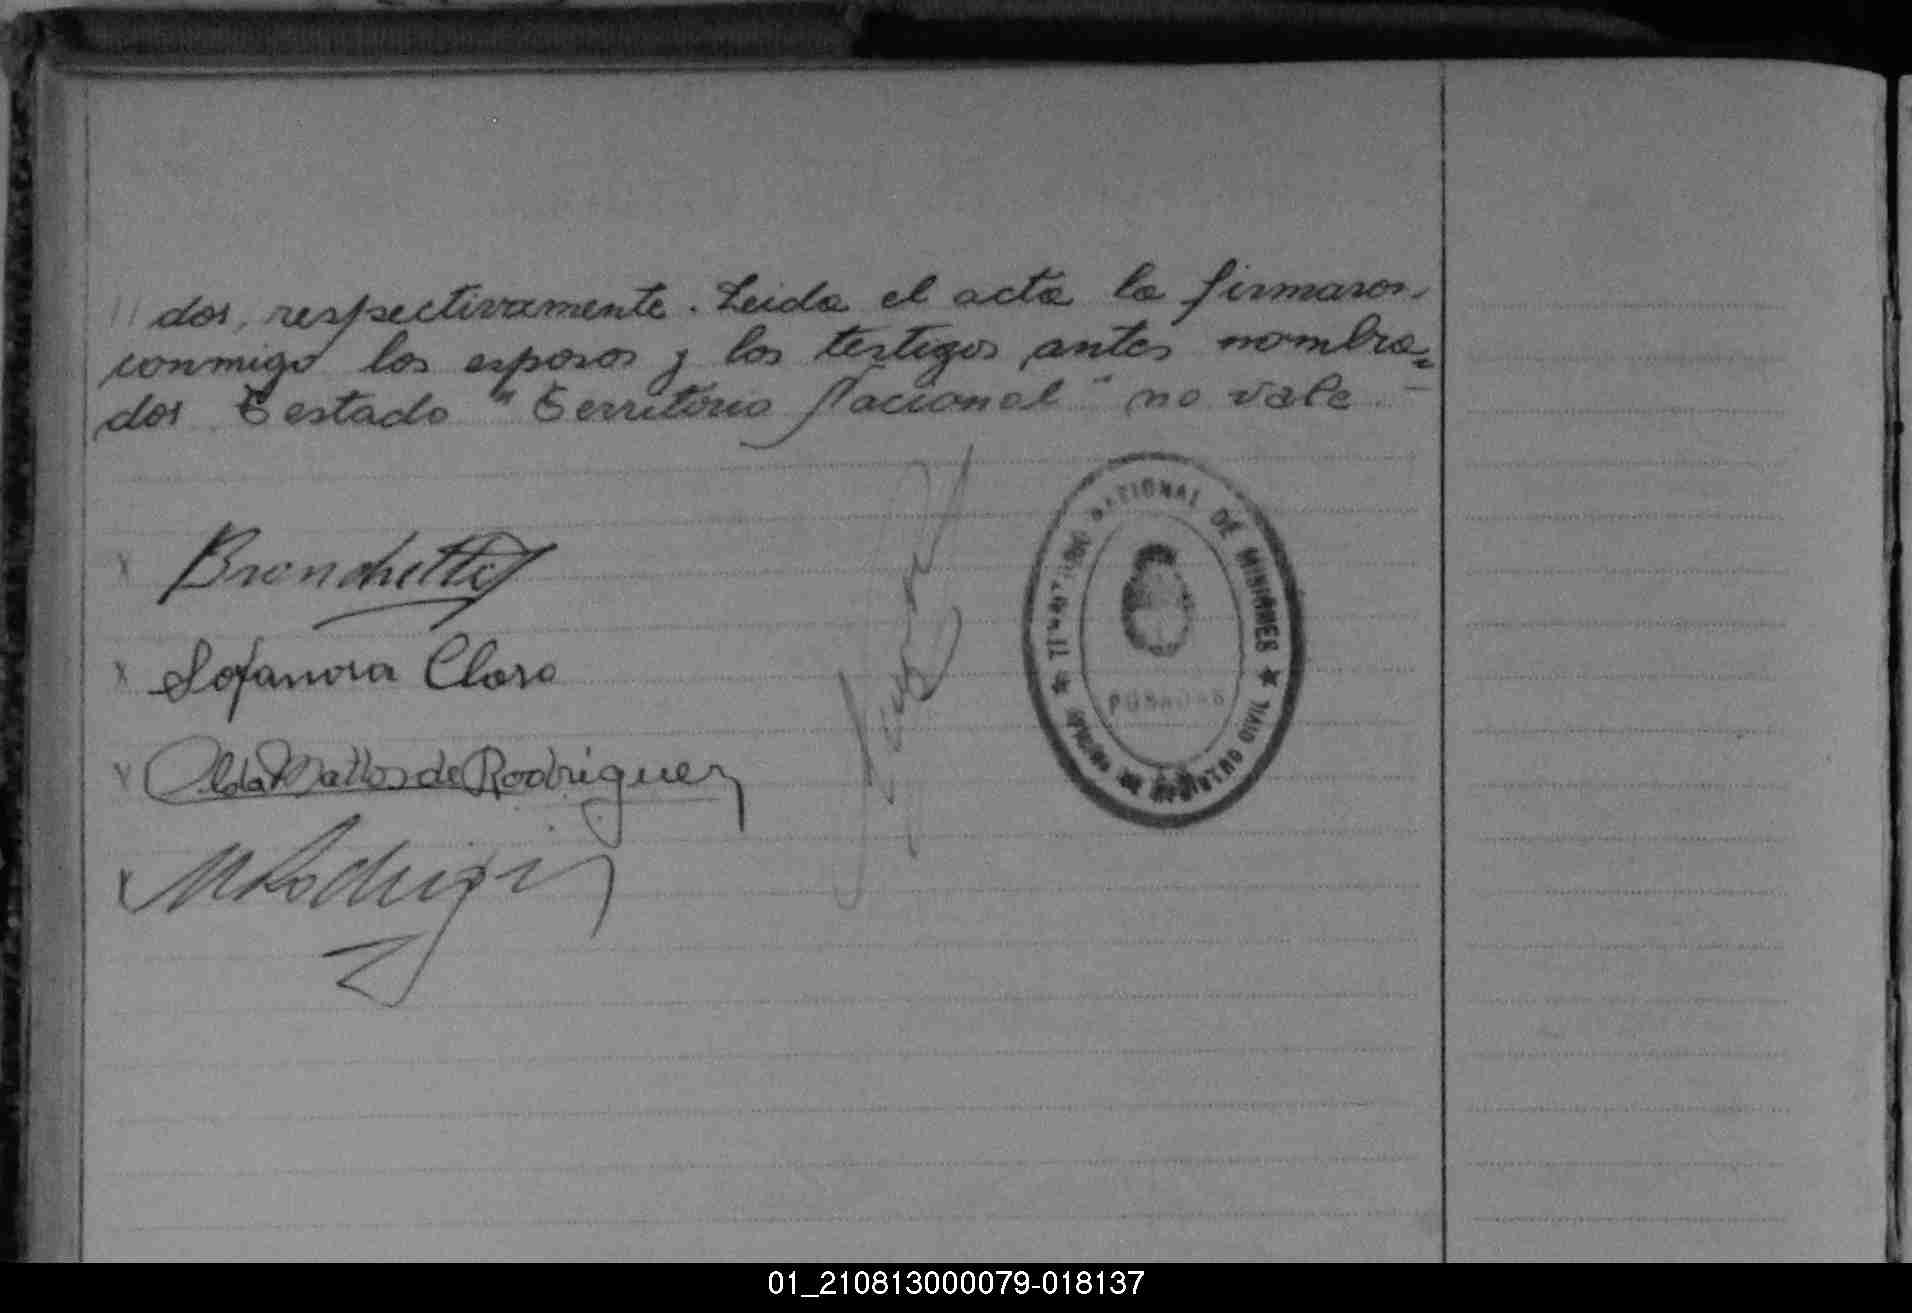 // dos, respectivamente. Leida el acta la firmaron
conmigo los esposos y los testigos antes nombra=
dos Testado "Territorio Nacional" no vale
TERRITORIO NACIONAL DE MISIONES
POSADAS
OFICINA DE REGISTRO CIVIL
x Bronchetti
x Sofanora Claro
x Alda Mattos de Rodriguez
x M Rodrigu
01_210813000079-018137